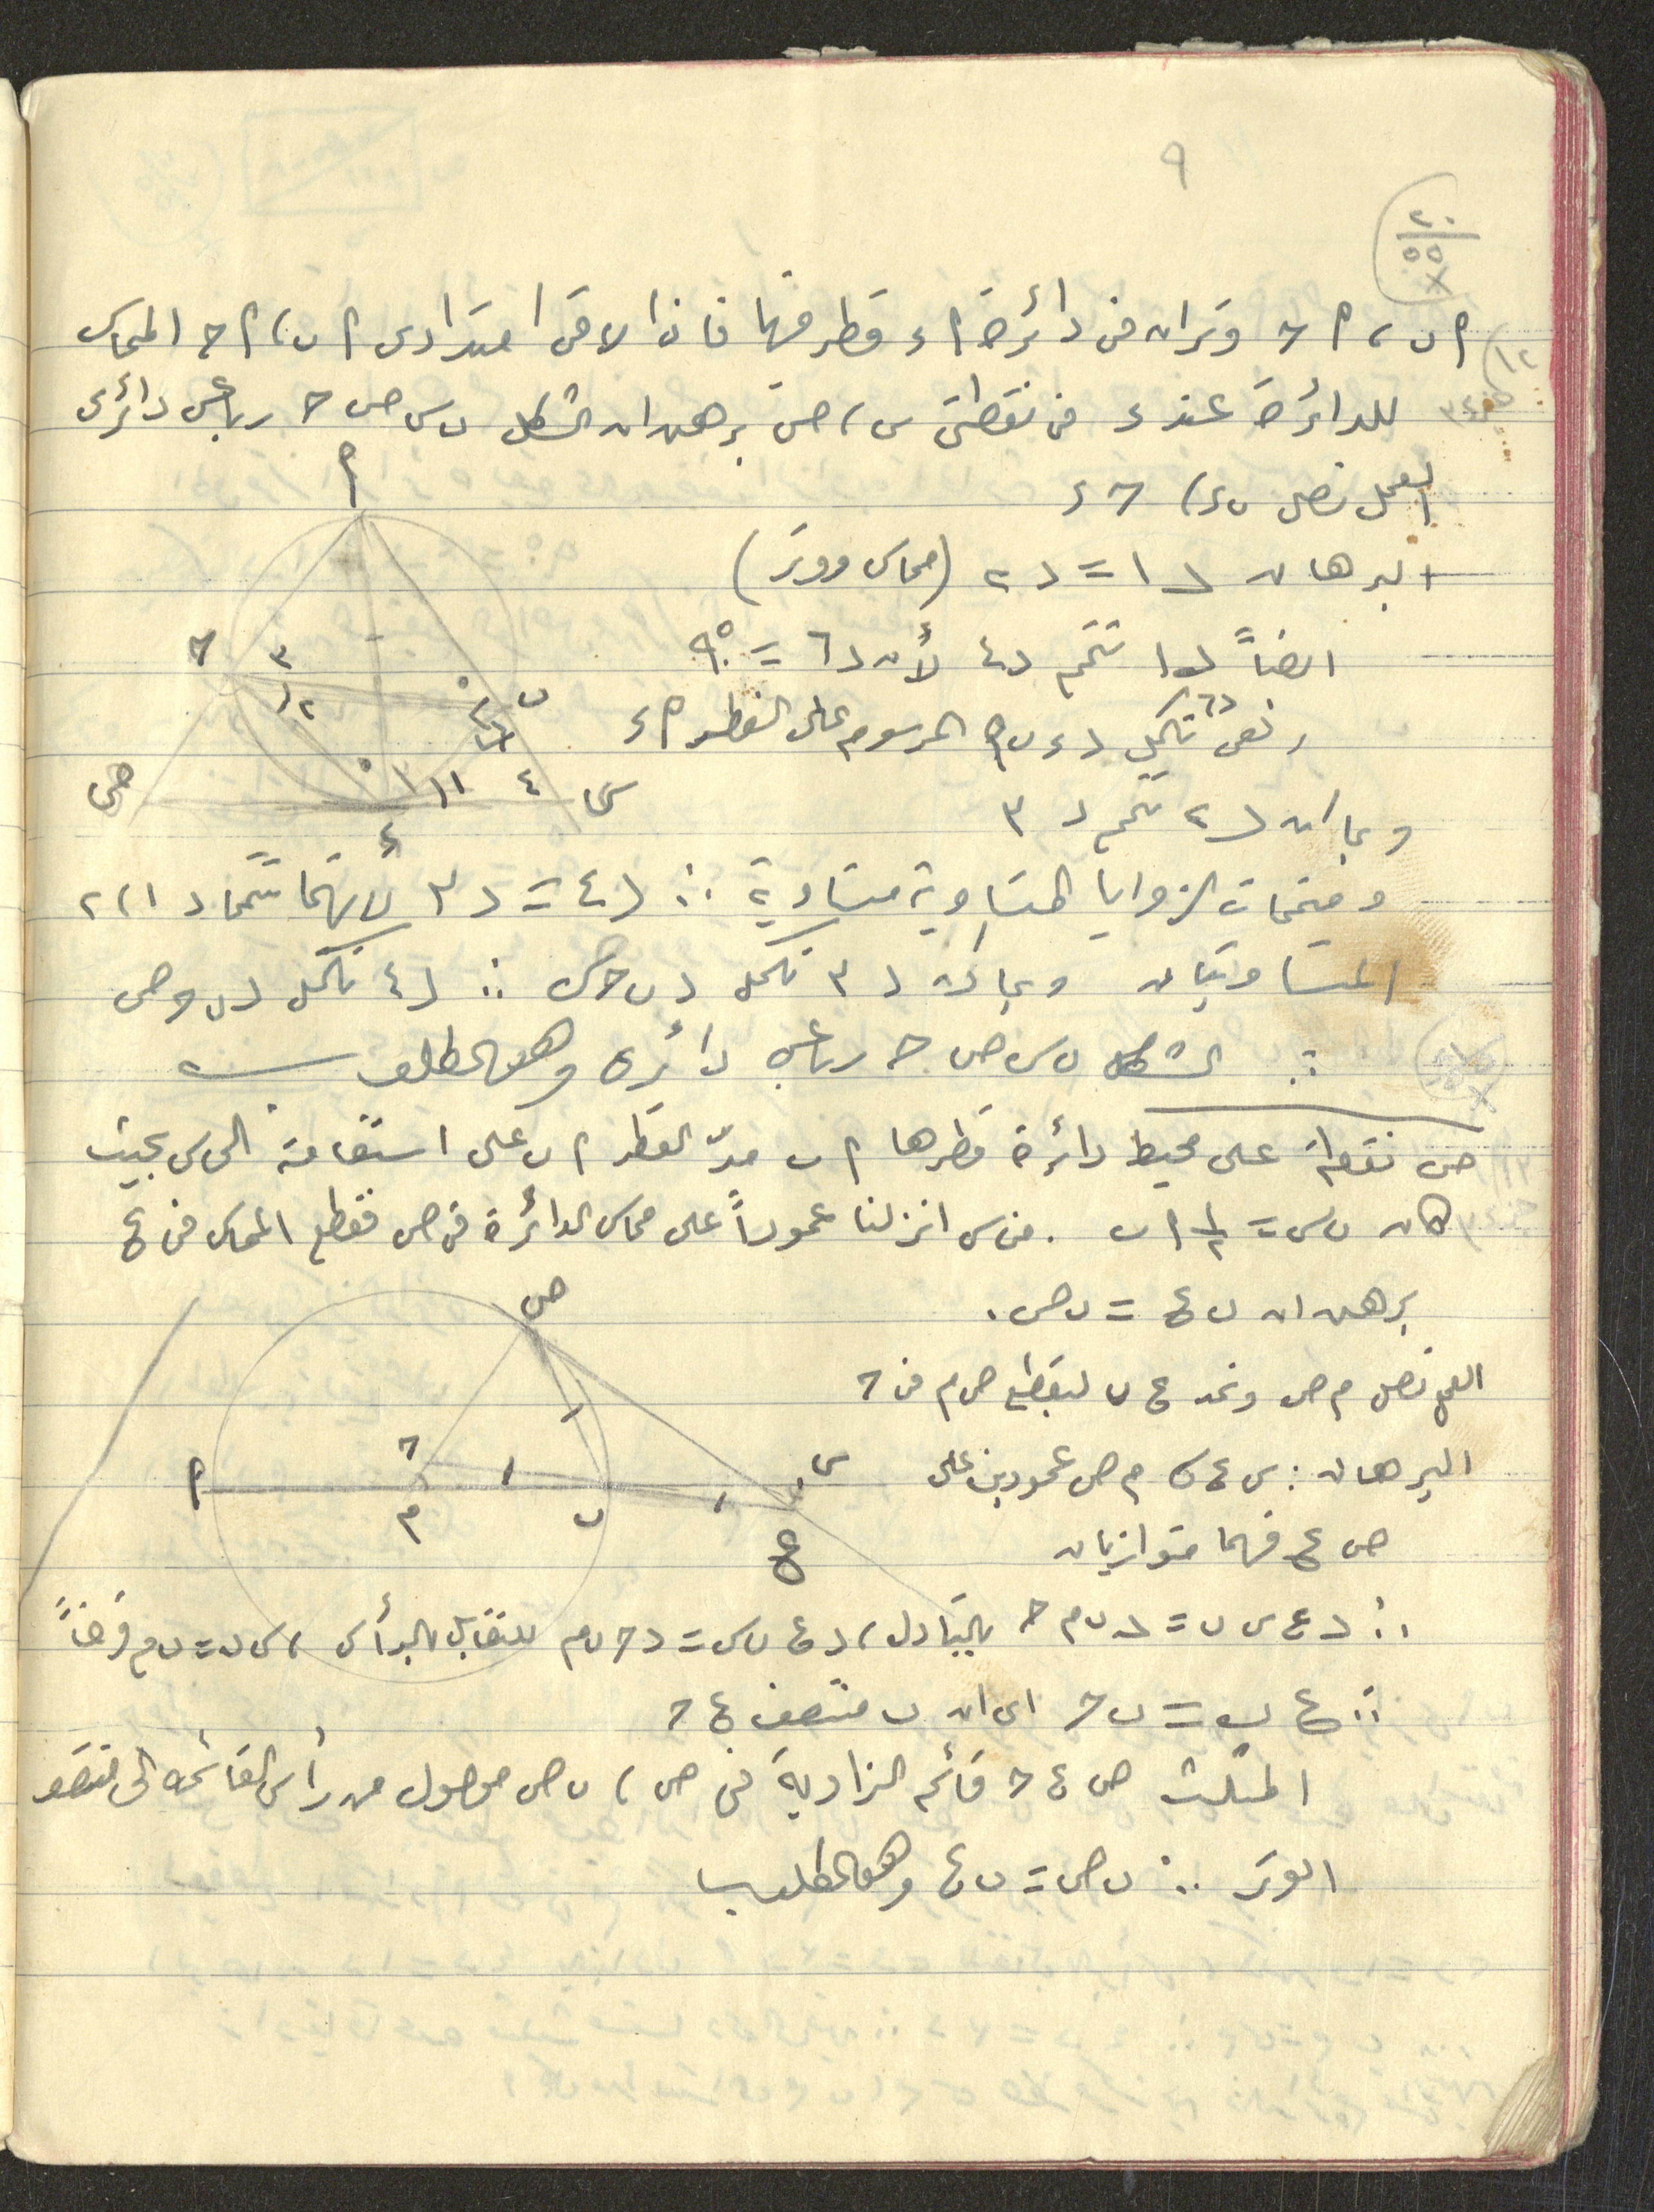 ٩
٢٠
٥٥
×
١٢) ا ب، ا ح وتران فى دائرة ا ء قطر فيها فاذا لاقى امتدادى ا ب، ا ح المماس
للدائرة عند ء فى نقطتى س، ص برهن ان الشكل ب س ص ح رباعى دائرى
العمل نصل ب ء، ح ء
البرهان د ١ = د ٢ (مماس ووتر)
ايضاً د ١ تتمم د ٤ لأن د ٦ = ٩٠°
د ٦ تكمل د ء ب ا المرسوم على القطر ا ء
وبما ان د ٢ تتمم د ٣
ومتممات الزوايا المتساوية متساوية ∴ د ٤ = د ٣ لأنهما تتمما د ١، ٢
المتساويتان وبما ان د ٣ تكمل د ب ح ص ∴ د ٤ تكمل د ب ح ص
∴ الشكل ب س ص ح رباعى دائرى وهو المطلوب
١٣) ص نقطة على محيط دائرة قطرها ا ب مدّ القطر ا ب على استقامة الى س بحيث
كان ب س = ١/٢ ا ب . من س انزلنا عموداً على مماس الدائرة فى ص فقطع المماس فى ع
برهن ان ب ع = ب ص .
العمل نصل م ص ونمد ع ب ليقطع ص م فى ح
البرهان : س ع، م ص عمودين على
ص ع فهما متوازيان
∴ د ع س ب = د ب م ح بالتبادل، د ع ب س = د ح ب م للتقابل بالرأس، س ب = ب م فرضاً
∴ ع ب = ب ح اى ان ب منتصف ع ح
المثلث ص ع ح قائم الزاوية فى ص، ب ص موصول من رأس القائمة الى منتصف
الوتر ∴ ب ص = ب ع وهو المطلوب
ا
ح
٣
٢
ب
ص
١
٤
س
ء
ص
ح
س
ا
م
ب
ع